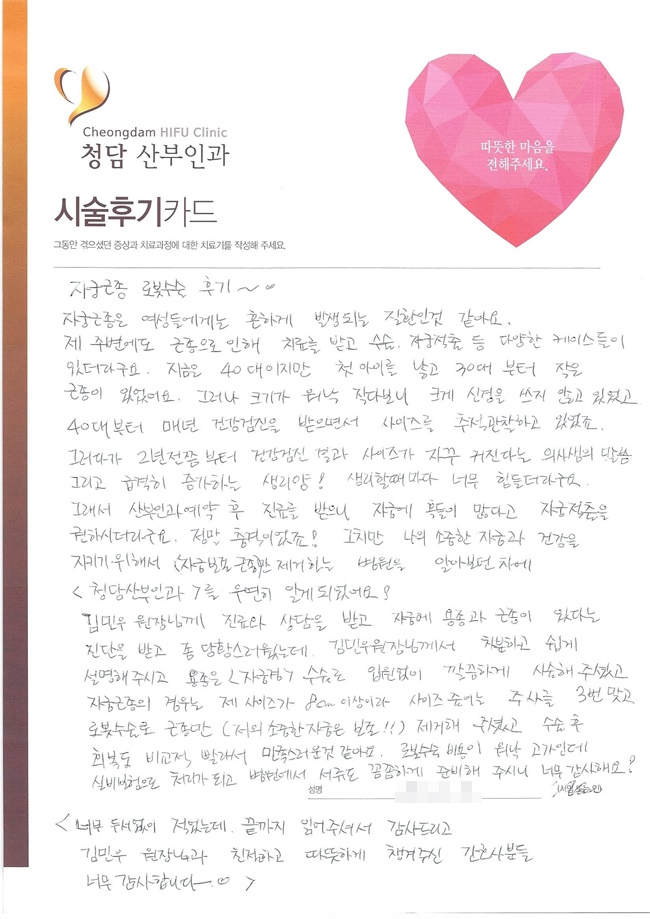 Cheongdam HIFU Clinic
청담 산부인과
따뜻한 마음을
전해주세요.
시술후기카드
그동안 겪으셨던 증상과 치료과정에 대한 치료기를 작성해 주세요.
자궁근종 로봇수술 후기~♡
자궁근종은 여성들에게는 흔하게 발생되는 질환인것 같아요.
제 주변에도 근종으로 인해 치료를 받고 수술, 자궁적출 등 다양한 케이스들이
있더라구요. 지금은 40대이지만 첫 아이를 낳고 30대 부터 작은
근종이 있었어요. 그러나 크기가 워낙 작다보니 크게 신경을 쓰지 않고 있었고
40대부터 매년 건강검진을 받으면서 사이즈를 추적관찰하고 있었죠.
그러다가 2년전쯤 부터 건강검진 결과 사이즈가 자꾸 커진다는 의사샘의 말씀
그리고 급격히 증가하는 생리양! 생리할때마다 너무 힘들더라구요.
그래서 산부인과예약 후 진료를 받으니 자궁에 혹들이 많다고 자궁적출을
권하시더라구요. 정말 충격이었죠! 그치만 나의 소중한 자궁과 건강을
지키기 위해서 (자궁보존 근종)만 제거하는 병원을 알아보던 차에
<청담산부인과>를 우연히 알게 되었어요!
김민우 원장님께 진료와 상담을 받고 자궁에 용종과 근종이 있다는
진단을 받고 좀 당황스러웠는데. 김민우원장님께서 차분하고 쉽게
설명해 주시고 용종은 <자궁경> 수술로 입원없이 깔끔하게 시술해 주셨고
자궁근종의 경우는 제 사이즈가 8cm 이상이라 사이즈 줄이는 주사를 3번 맞고
로봇수술로 근종만 (저의 소중한 자궁은 보존!!) 제거해 주셨고 수술 후
회복도 비교적 빨라서 만족스러운것 같아요. 로봇수술 비용이 워낙 고가인데
실비보험으로 처리가 되고 병원에서 서류도 꼼꼼하게 준비해 주시니 너무 감사해요!
성명
<너무 두서없이 적었는데. 끝까지 읽어주셔서 감사드리고
김민우 원장님과 친절하고 따뜻하게 챙겨주신 간호사분들
너무 감사합니다~♡>